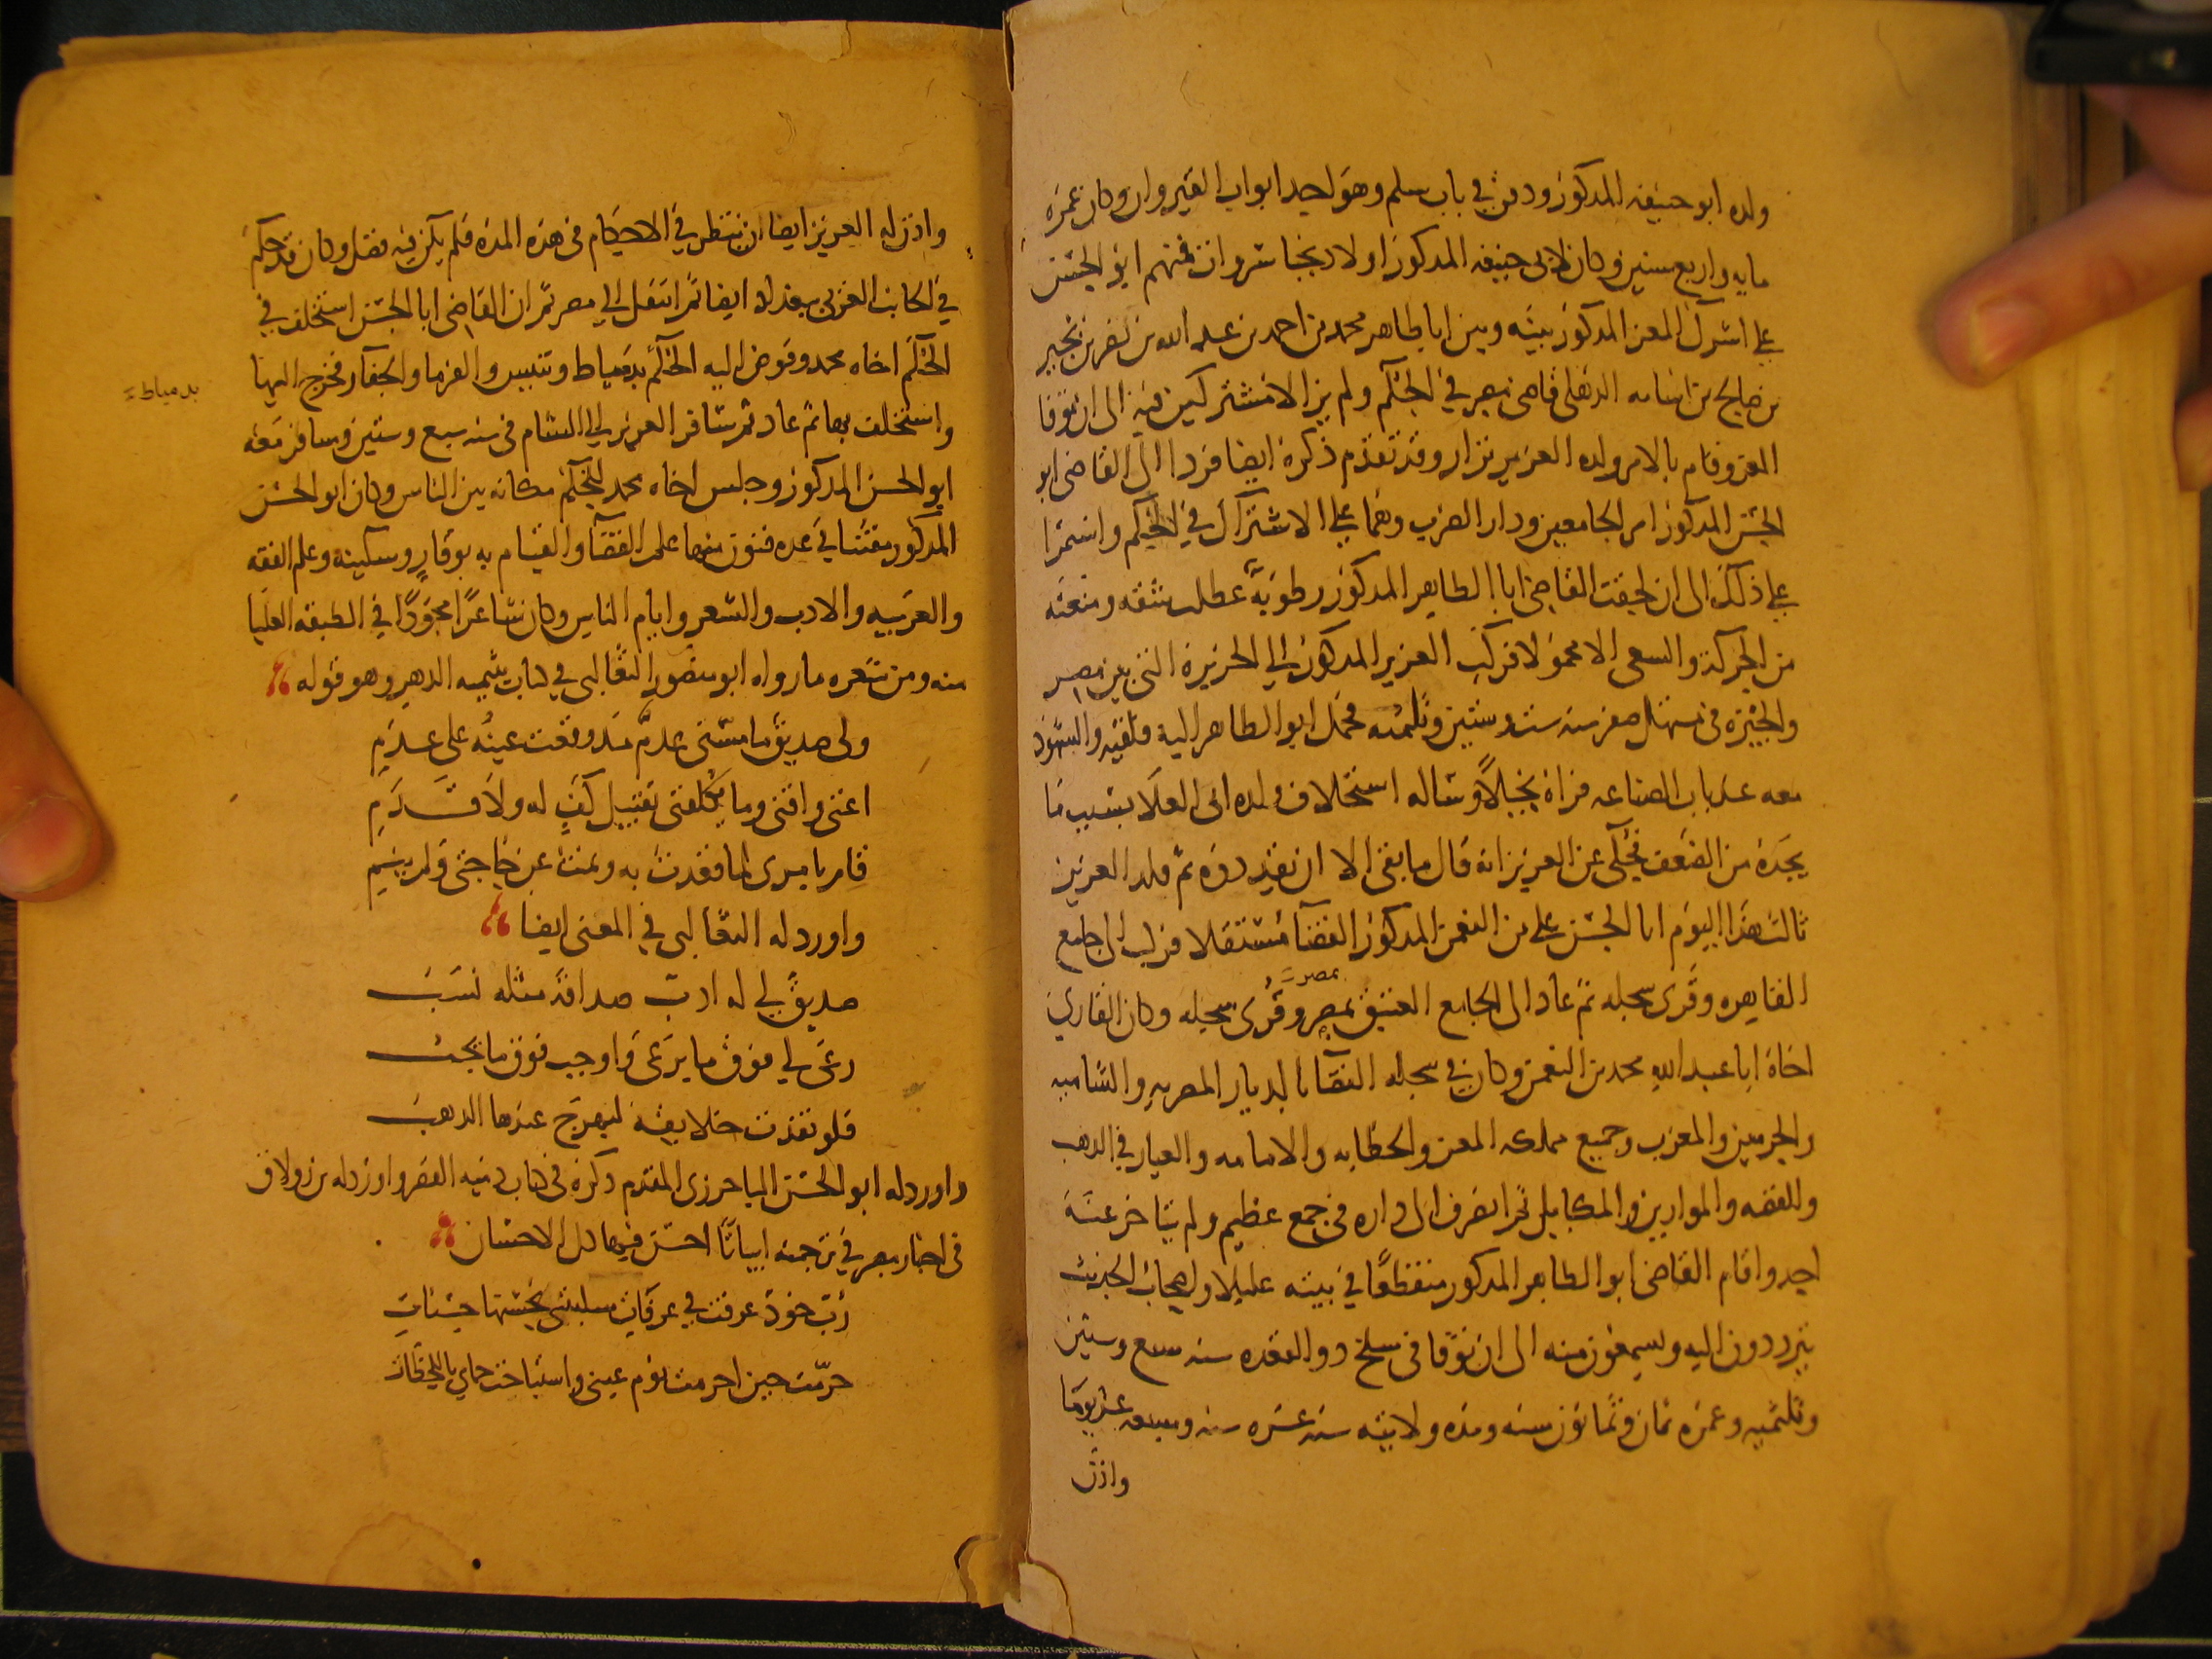 ولده ابو حنيفه المذكور ودفن في باب سلم وهو احد ابواب القيروان وكان عمره
مايه واربع سنين وكان لابي حنيفه المذكور اولاد نجبا سروات فمنهم ابو الحسن
علي اشرك المعز المذكور بينه وبين ابا طاهر محمد بن احمد بن عبد الله بن نصر بن بجير
بن صالح بن اسامه الذهلي قاضي مصر في الحكم ولم يزالا مشتركين فيه الى ان توفا
المعز وقام بالامر ولده العزيز نزار وقد تقدم ذكره ايضا فرد الى القاضي ابو
الحسن المذكور امر الجامعين ودار الضرب وهما علي الاشتراك في الحكم واستمرا
علي ذلك الى ان لحقت القاضي ابا الطاهر المذكور رطوبة عطلت شقه ومنعته
من الحركة والسعى الا محمولا فركب العزيز المذكور الي الجزيرة التي بين مصر
والجيزه في مستهل صفر سنه ست وستين وثلثمئه فحمل ابو الطاهر اليه فلقيه والشهود
معه عند باب الصناعه فراه نحيلاً وساله استخلاف ولده ابى العلا بسبب ما
يجده من الضعف فحكى عن العزيز انه قال ما بقى الا ان تقددوه ثم قلد العزيز
ثالث هذا اليوم ابا الحسن علي بن النعمن المذكور القضآ مستقلا فركب الى جامع
القاهره وقرى سجله ثم عاد الى الجامع العتيق بمصر وقرى سجله وكان القاري
بمصر
اخاه ابا عبد الله محمد بن النعمن وكان في سجله القضآ بالديار المصريه والشاميه
والحرمين والمغرب وجميع مملكه المعز والخطابه والامامه والعيار في الذهب
والفضه والموازين والمكاييل ثم انصرف الى داره في جمع عظيم ولم يتاخر عنه
احد واقام القاضي ابو الطاهر المذكور منقطعًا في بيته عليلا واصحاب الحديث
يترددون اليه ويسمعون منه الى ان توفا في سلخ ذو القعده سنه سبع وستين
وثلثميه وعمره ثمان وثمانون سنه ومده ولايته ست عشره سنه وسبعه عشر يومًا
واذن
واذن له العزيز ايضا ان ينظر في الاحكام في هذه المده فلم يكن فيه فضل وكان قد حكم
في الجانب الغربي ببغداد ايضا ثم انتقل الي مصر ثم ان القاضي ابا الحسن استخلف في
الحكم اخاه محمد وفوض اليه الحكم بدمياط وتنيس والفرما والجفار فخرج اليها
بدمياط
واستخلف بها ثم عاد ثم سافر العزيز الي الشام في سنه سبع وستين وسافر معه
ابو الحسن المذكور وجلس اخاه محمد للحكم مكانه بين الناس وكان ابو الحسن
المذكور مفننا في عده فنون منها علم القضآ والقيام به بوقارٍ وسكينه وعلم الفقه
والعربيه والادب والشعر وايام الناس وكان شاعرًا مجوّدًا في الطبقه العليا
منه ومن شعره ما رواه ابو منصور الثعالبى في كتاب يتيمه الدهر وهو قوله
ولى صديق ما مسنى عدمٌ مذ وقعت عينهُ على عدمِ
اغنى واقنى وما يكلفنى تقبيل كفٍ له ولا قدمِ
قام بامرى لما قعدت به ونمت عن حاجتى ولم ينمِ
واورد له الثعالبى في المعنى ايضا
صديق لي له ادب صداقة مثله نسب
رعى لي فوق ما يرعى واوجب فوق ما يجب
فلو نقدت خلايقه لبهرج عندها الذهب
واورد له ابو الحسن الباخرزى المقدم ذكره في كتاب دميه القصر واورد له بن زولاق
في اخبار مصر في ترجمته ابياتًا احسن فيها كل الاحسان
ربّ خود عرفت في عرفات سلبتنى بحسنها حسنات
حرّمت حين احرمت نوم عينى واستباحت حماي باللحظات